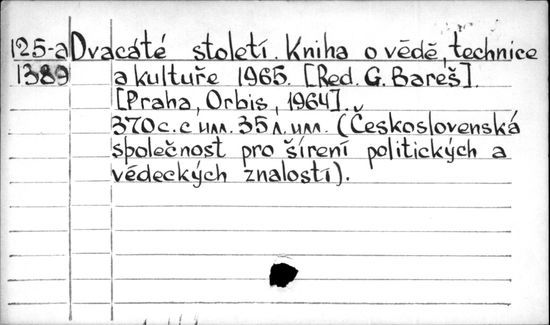 125-a Dvacáté století. Kniha o vědě, technice
1389 a kultuře 1965. [Red. G. Bareš].
[Praha, Orbis, 1964].
370 с. с илл. 35 л. илл. (Československá
společnost pro šírení politických a
vědeckých znalostí).